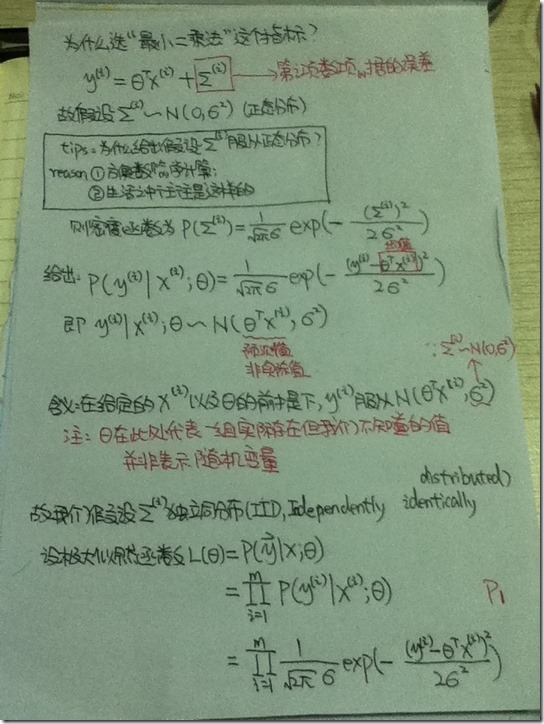 为什么选"最小二乘法"这个指标?
y⁽ⁱ⁾ = θᵀx⁽ⁱ⁾ + Σ⁽ⁱ⁾ → 第i项数据的误差
故假设 Σ⁽ⁱ⁾ ~ N(0, σ²) (正态分布)
tips: 为什么给出假设 Σ⁽ⁱ⁾ 服从正态分布?
reason ① 方便数学计算;
② 生活之中往往是这样的
则密度函数为 P(Σ⁽ⁱ⁾) = 1/√2π σ exp(- (Σ⁽ⁱ⁾)²/2σ²)
均值
给出: P(y⁽ⁱ⁾|x⁽ⁱ⁾;θ) = 1/√2π σ exp(- (y⁽ⁱ⁾-θᵀx⁽ⁱ⁾)²/2σ²)
即 y⁽ⁱ⁾|x⁽ⁱ⁾;θ ~ N(θᵀx⁽ⁱ⁾, σ²)
预测值
非实际值
∵ Σ⁽ⁱ⁾ ~ N(0,σ²)
含义: 在给定的 x⁽ⁱ⁾ 以及θ的前提下, y⁽ⁱ⁾ 服从 N(θᵀx⁽ⁱ⁾, σ²)
注: θ在此处代表一组实际存在但我们不知道的值
并非表示随机变量
故我们假设 Σ⁽ⁱ⁾ 为独立同分布 (IID, Independently identically distributed)
设极大似然函数 L(θ) = P(y⃗|x;θ)
= ∏ᵢ₌₁ᵐ P(y⁽ⁱ⁾|x⁽ⁱ⁾;θ)
P1
= ∏ᵢ₌₁ᵐ 1/√2π σ exp(- (y⁽ⁱ⁾-θᵀx⁽ⁱ⁾)²/2σ²)